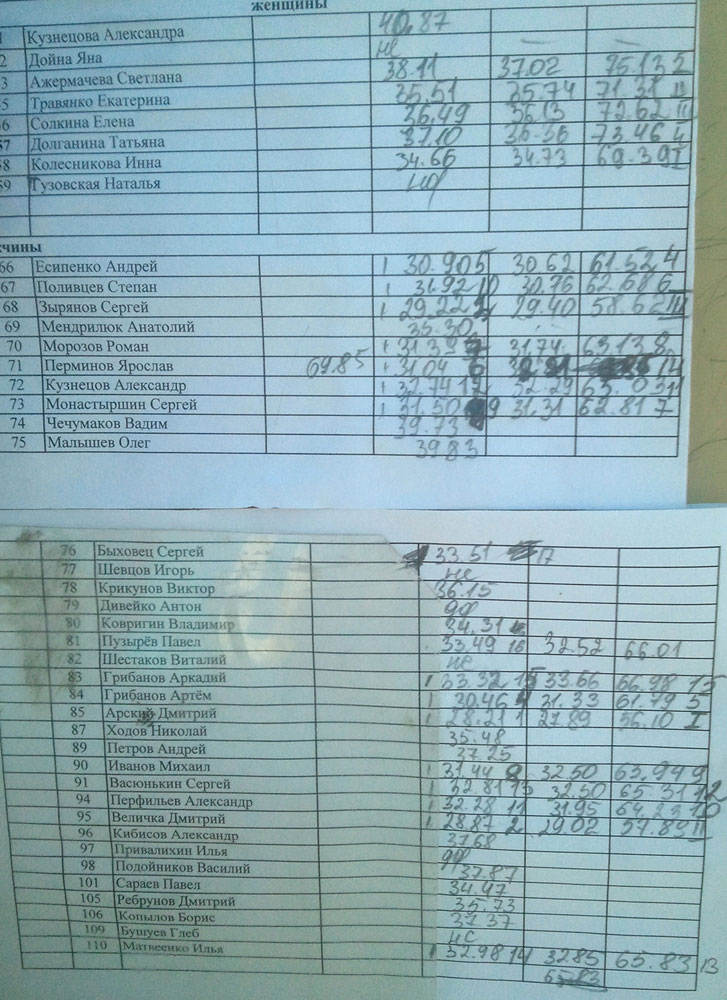 женщины
Кузнецова Александра 40.87
2 Дойна Яна не — —
3 Ажермачева Светлана 38.11 37.02 75.13 2
5 Травянко Екатерина 35.51 35.74 71.31 II
56 Солкина Елена 36.49 36.13 72.62 III
57 Долганина Татьяна 37.10 36.36 73.46 4
58 Колесникова Инна 34.66 34.73 69.39 I
59 Тузовская Наталья
жчины
66 Есипенко Андрей 1 30.90 5 30.62 61.52 4
67 Поливцев Степан 1 31.92 10 30.76 62.68 6
68 Зырянов Сергей 1 29.22 29.40 58.62 III
69 Мендрилюк Анатолий 35.30
70 Морозов Роман 1 31.39 31.74 63.13 8
71 Перминов Ярослав 69.85 1 31.04 6
72 Кузнецов Александр 1 32.74 12 32.29 65.03 11
73 Монастыршин Сергей 1 31.50 9 31.31 62.81 7
74 Чечумаков Вадим 39.73
75 Малышев Олег 39.83
76 Быховец Сергей 33.51 17
77 Шевцов Игорь не
78 Крикунов Виктор 36.15
79 Дивейко Антон
80 Ковригин Владимир 34.31
81 Пузырёв Павел 33.49 16 32.52 66.01
82 Шестаков Виталий не
83 Грибанов Аркадий 1 33.32 15 33.66 66.98 15
84 Грибанов Артём 1 30.46 31.33 61.79 5
85 Арский Дмитрий 1 28.21 1 27.89 56.10 I
87 Ходов Николай 35.48
89 Петров Андрей 37.25
90 Иванов Михаил 1 31.44 32.50 63.94 9
91 Васюнькин Сергей 1 32.81 13 32.50 65.31 12
94 Перфильев Александр 1 32.28 11 31.95 64.23 10
95 Величка Дмитрий 1 28.87 2 29.02 57.89 II
96 Кибисов Александр 37.68
97 Привалихин Илья
98 Подойников Василий 37.87
101 Сараев Павел 34.47
105 Ребрунов Дмитрий 35.73
106 Копылов Борис 37.37
109 Бушуев Глеб нс
110 Матвеенко Илья 1 32.98 14 32.85 65.83 13
65.83